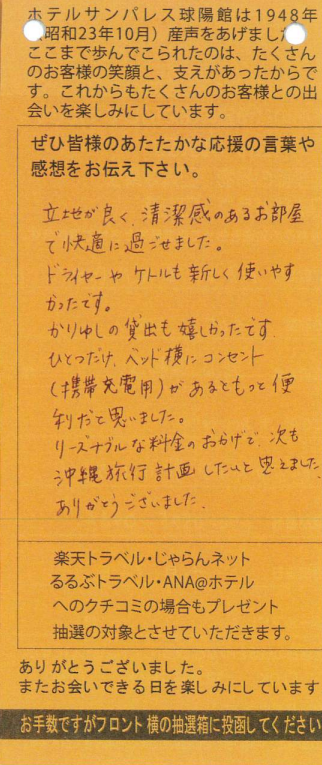 ホテルサンパレス球陽館は1948年
昭和23年10月）産声をあげました
ここまで歩んでこられたのは、たくさん
のお客様の笑顔と、支えがあったからで
す。これからもたくさんのお客様との出
会いを楽しみにしています。
ぜひ皆様のあたたかな応援の言葉や
感想をお伝え下さい。
立地が良く、清潔感のあるお部屋
で快適に過ごせました。
ドライヤーやケトルも新しく使いやす
かったです。
かりゆしの貸出も嬉しかったです
ひとつだけ、ベッド横にコンセント
（携帯充電用）があるともっと便
利だと思いました。
リーズナブルな料金のおかげで、次も
沖縄旅行計画したいと思えました
ありがとうございました。
楽天トラベル・じゃらんネット
るるぶトラベル・ANA@ホテル
へのクチコミの場合もプレゼント
抽選の対象とさせていただきます。
ありがとうございました。
またお会いできる日を楽しみにしています
お手数ですがフロント横の抽選箱に投函してください